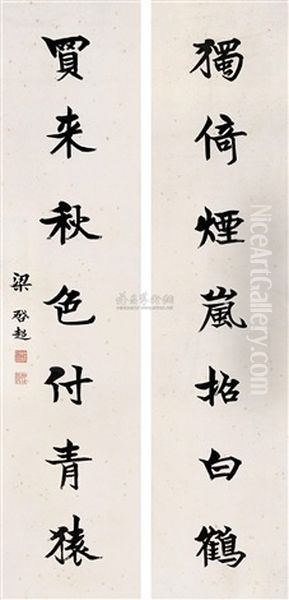 獨倚煙嵐招白鶴
買来秋色付青猿
梁啓超
NiceArtGallery.com